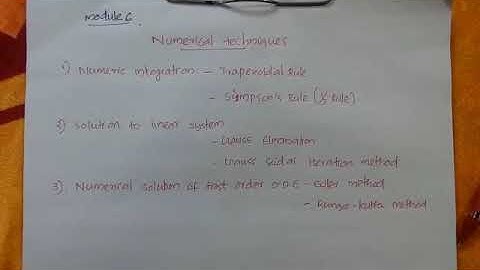 Module 6.
Numerical techniques
1) Numeric integration - Trapezoidal Rule
- Simpson's Rule (⅓ Rule)
2) solution to linear system
- Gauss Elimination
- Gauss Seidal iteration method
3) Numerical solution of first order O.D.E - Euler method
- Runge-kutta method